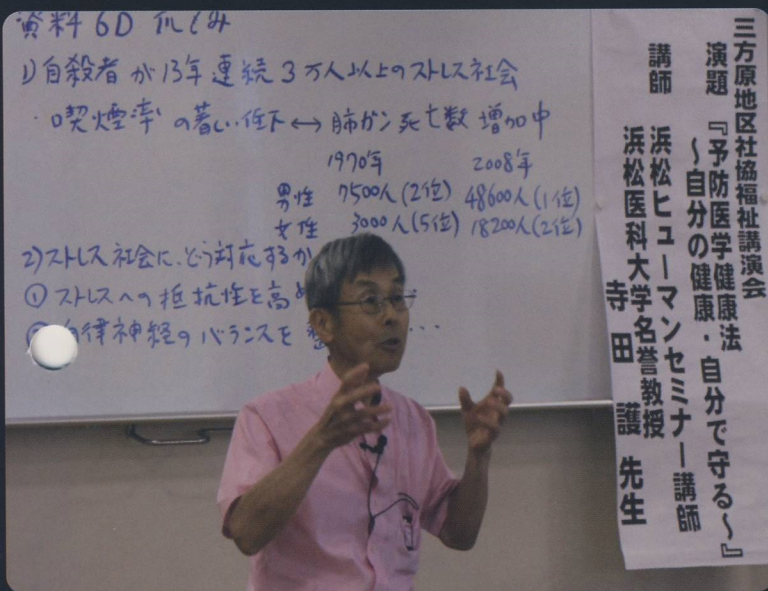 資料6D
1)自殺者が13年連続3万人以上のストレス社会
・喫煙率の著しい低下↔肺ガン死亡数増加中
1970年 2008年
男性 7500人(2位) 48600人(1位)
女性 3000人(5位) 18200人(2位)
2)ストレス社会に、どう対応するか
① ストレスへの抵抗性を高め
律神経のバランスを 整 …
三方原地区社協福祉講演会
演題 『予防医学健康法
～自分の健康・自分で守る～』
講師 浜松ヒューマンセミナー講師
浜松医科大学名誉教授
寺田 護 先生